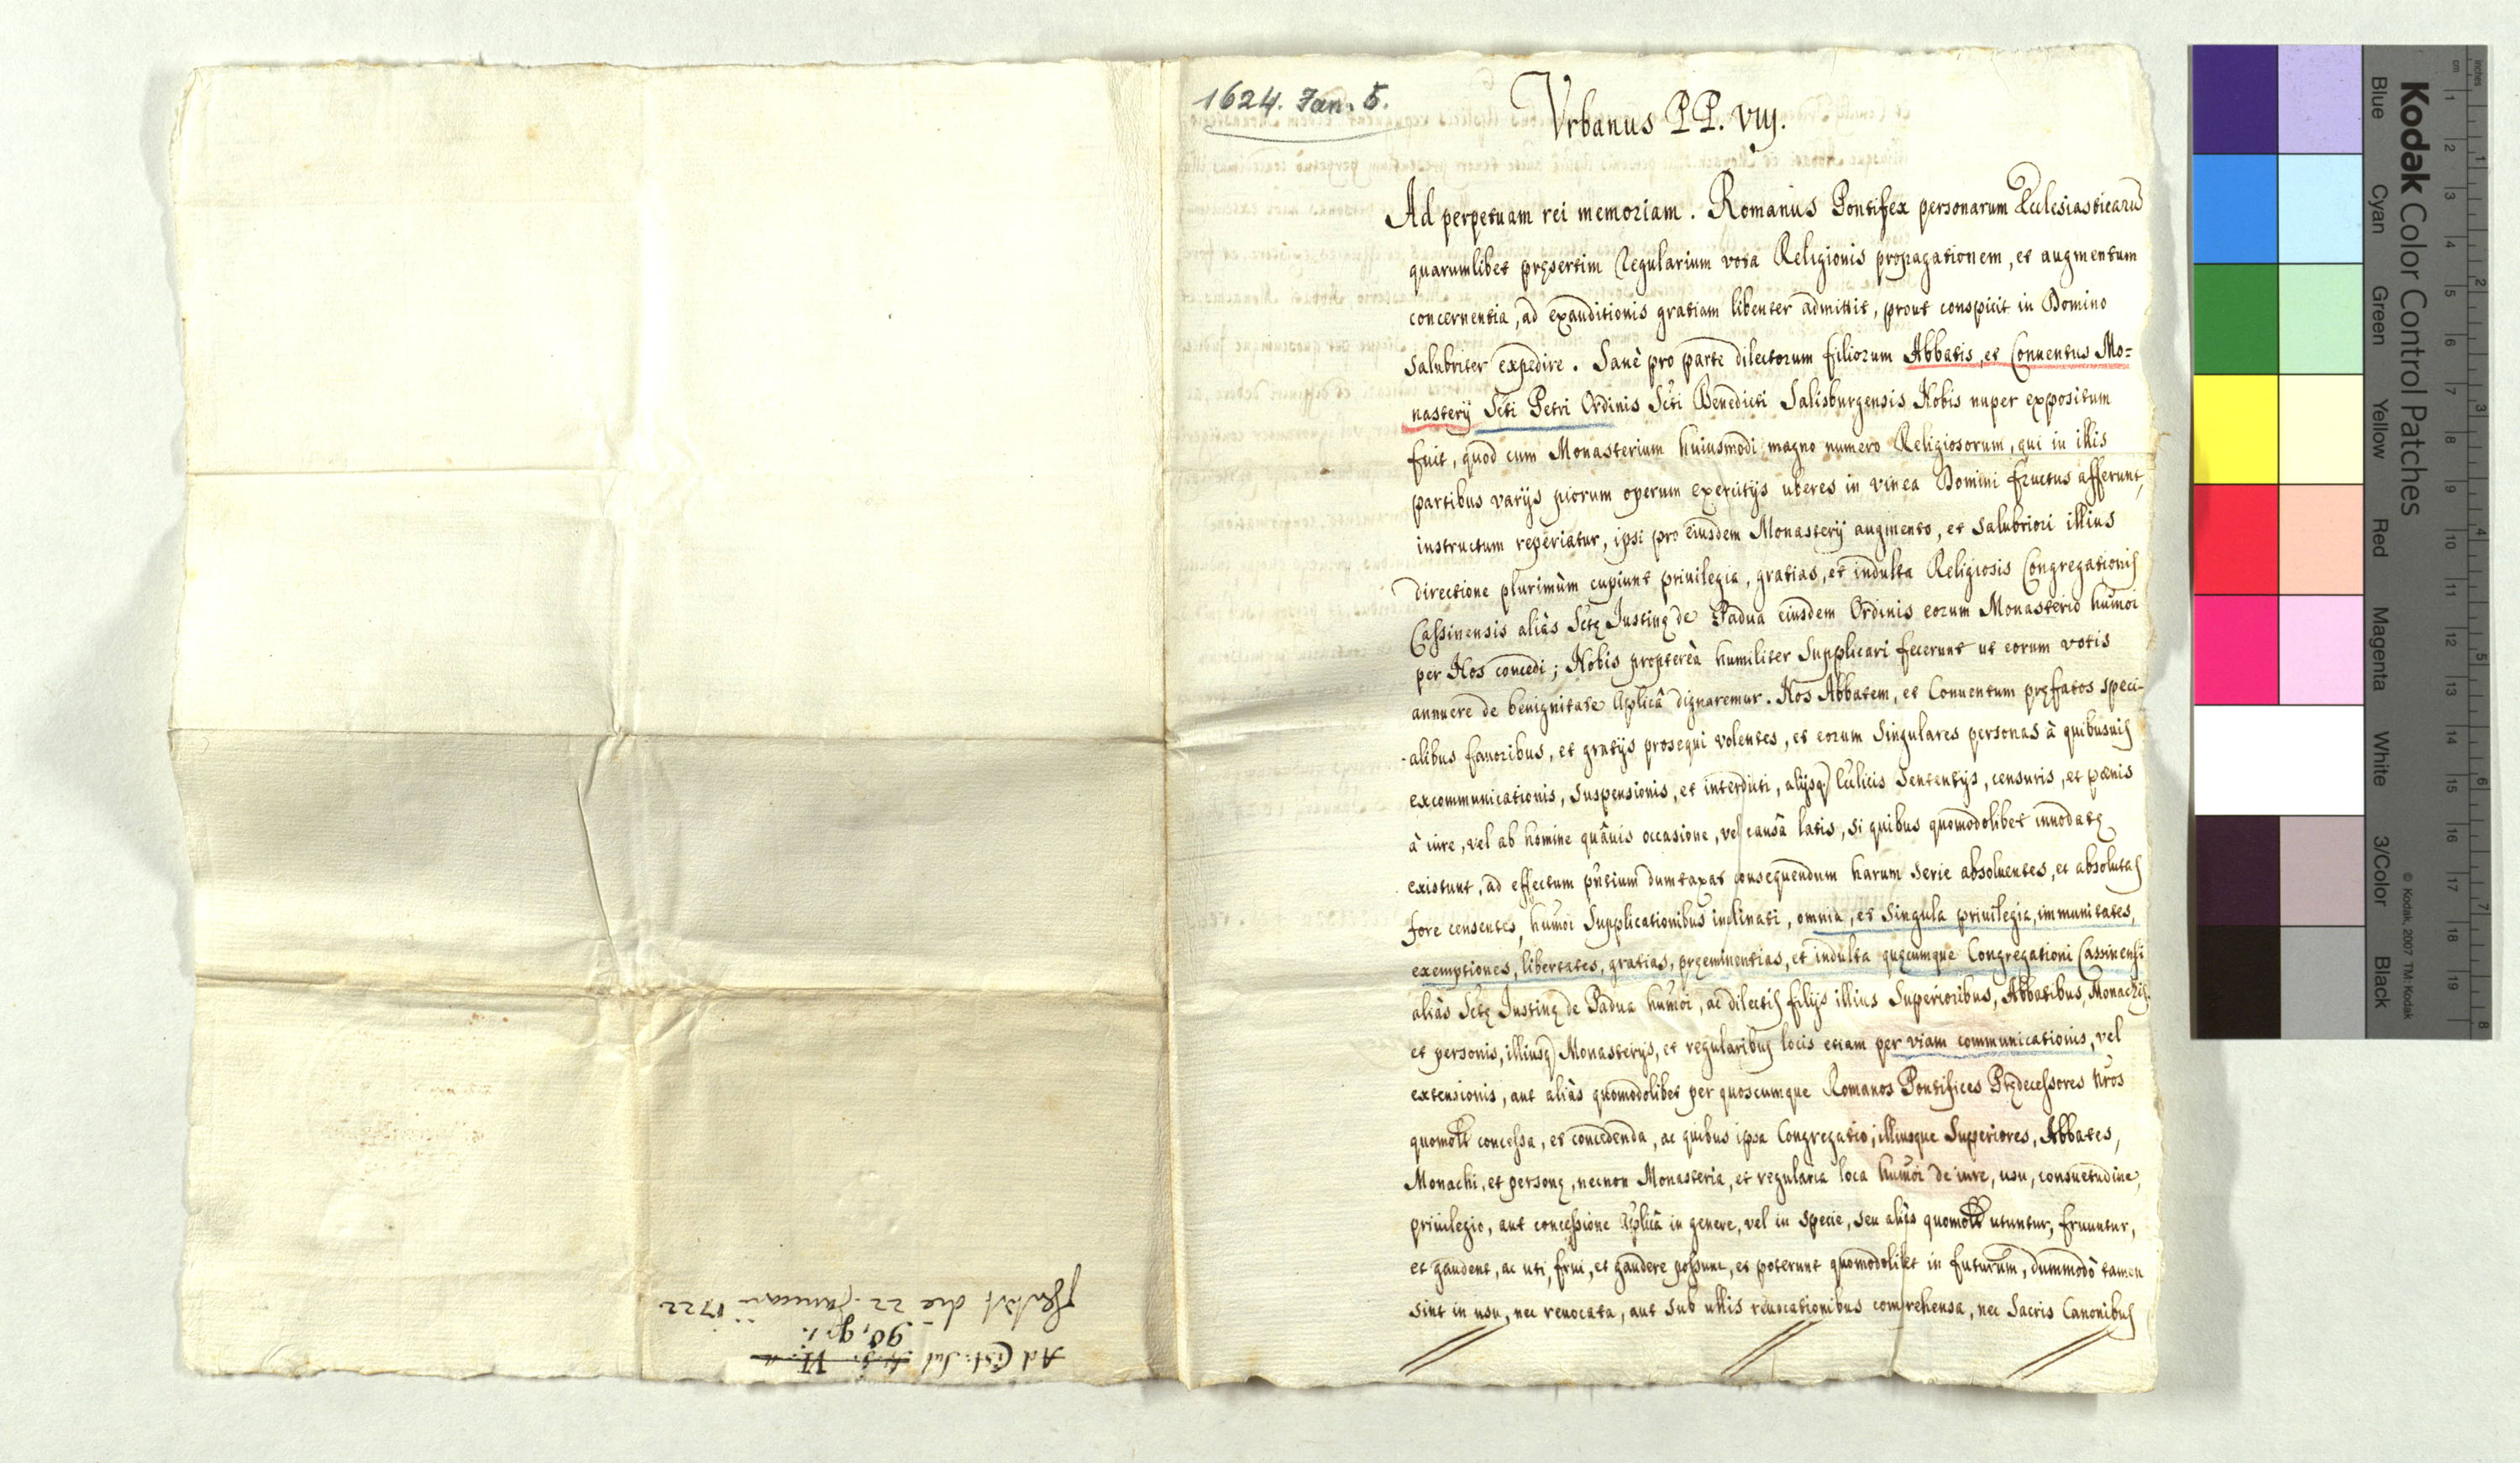 1624. Jan. 5.
Vrbanus P P. VIIJ.
Ad perpetuam rei memoriam. Romanus Pontifex personarum Ecclesiasticarũ
quarumlibet pręsertim Regularium vota Religionis propagationem, et augmentum
concernentia, ad exauditionis gratiam libenter admittit, prout conspicit in Domino
salubriter expedire. Sanè pro parte dilectorum filiorum Abbatis, et Conuentus Mo=
nasterij Scti Petri Ordinis Scti Benedicti Salisburgensis Nobis nuper expositum
fuit, quod cum Monasterium huiusmodi magno numero Religiosorum, qui in illis
partibus varijs piorum operum exercitijs uberes in vinea Domini fructus afferunt,
instructum reperiatur, ipsi pro eiusdem Monasterij augmento, et salubriori illius
directione plurimùm cupiunt priuilegia, gratias, et indulta Religiosis Congregationis
Cassinensis aliàs Sctę Iustinę de Padua eiusdem Ordinis eorum Monasterio hum̃oi
per Nos concedi; Nobis propterèa humiliter supplicari fecerunt ut eorum votis
annuere de benignitate Aplicâ dignaremur. Nos Abbatem, et Conuentum pręfatos speci-
alibus fauoribus, et gratijs prosequi volentes, et eorum singulares personas à quibusuis
excommunicationis, suspensionis, et interdicti, alijsq Ecclicis sententijs, censuris, et pœnis
à iure, vel ab homine quâuis occasione, vel causâ latis, si quibus quomodolibet innodatę
existunt, ad effectum pñtium dumtaxat consequendum harum serie absoluentes, et absolutas
fore censentes, hum̃oi supplicationibus inclinati, omnia, et singula priuilegia, immunitates,
exemptiones, libertates, gratias, pręeminentias, et indulta quęcumque Congregationi Cassinensi
aliàs Sctę Iustinę de Padua hum̃oi, ac dilectis filijs illius Superioribus, Abbatibus, Monachis,
et personis, illiusq Monasterijs, et regularibus locis etiam per viam communicationis, vel
extensionis, aut aliàs quomodolibet per quoscumque Romanos Pontifices Prędecessores nr̃os
quomolt concessa, et concedenda, ac quibus ipsa Congregatio, illiusque Superiores, Abbates,
Monachi, et personę, necnon Monasteria, et regularia loca hum̃oi de iure, usu, consuetudine,
priuilegio, aut concessione Aplicâ in genere, vel in specie, seu aliàs quomolt utuntur, fruuntur,
et gaudent, ac uti, frui, et gaudere possunt, et poterunt quomodolibet in futurum, dummodò tamen
sint in usu, nec reuocata, aut sub ullis reuocationibus comprehensa, nec Sacris Canonibus
die 22 Januarii 1722
Kodak Color Control Patches
Blue
Cyan
Green
Yellow
Red
Magenta
White
3/Color
Black
© Kodak, 2007 TM: Kodak
inches
cm
1 2 3 4 5 6 7 8 9 10 11 12 13 14 15 16 17 18 19
1 2 3 4 5 6 7 8